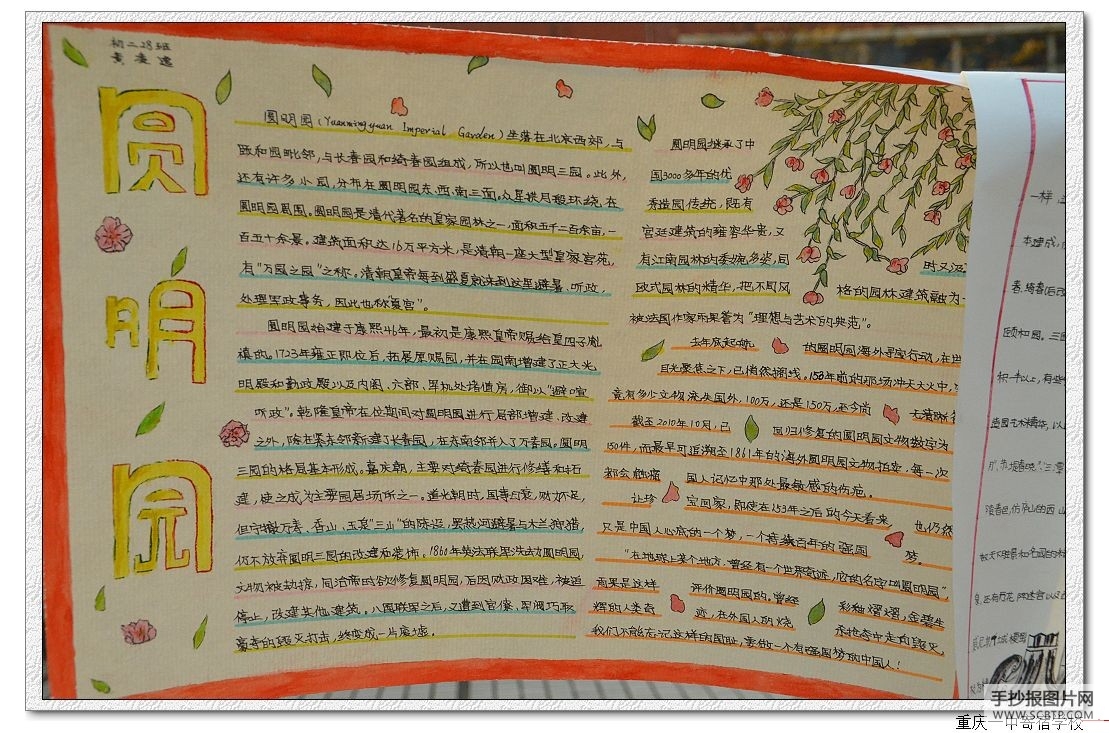 初二28班
圆明园
圆明园(Yuanmingyuan Imperial Garden)坐落在北京西郊,与
颐和园毗邻,与长春园和绮春园组成,所以也叫圆明三园。此外,
还有许多小园,分布在圆明园东、西、南三面,众星拱月般环绕在
圆明园周围。圆明园是清代著名的皇家园林之一,面积五千二百余亩,一
百五十余景。建筑面积达16万平方米,是清朝一座大型皇家宫苑,
有“万园之园”之称。清朝皇帝每到盛夏就来到这里避暑、听政,
处理军政事务,因此也称夏宫”。
圆明园始建于康熙46年,最初是康熙皇帝赐给皇四子胤
禛的。1723年雍正即位后,拓展原赐园,并在园南增建了正大光
明殿和勤政殿以及内阁、六部、军机处诸值房,御以“避喧
听政”。乾隆皇帝在位期间对圆明园进行局部增建、改建
之外,除在紧东邻新建了长春园,在东南邻并入了万春园。圆明
三园的格局基本形成。嘉庆朝,主要对绮春园进行修缮和拓
建,使之成为主要园居场所之一。道光朝时,国事日衰,财力不足,
但宁撤万寿、香山、玉泉“三山”的陈设,罢热河避暑与木兰狩猎,
仍不放弃圆明三园的改建和装饰。1860年英法联军洗劫圆明园,
文物被劫掠,同治帝时欲修复圆明园,后因财政困难,被迫
停止,改建其他建筑。八国联军之后,又遭到官僚、军阀巧取
豪夺的毁灭打击,终变成一片废墟。
圆明园继承了中
国3000多年的优
秀造园传统,既有
宫廷建筑的雍容华贵,又
有江南园林的委婉多姿,同
时又汲
欧式园林的精华,把不同风
格的园林建筑融为一
被法国作家雨果誉为“理想与艺术的典范”。
去年底起航
的圆明园海外寻宝行动,在世
目光聚焦之下,已悄然搁浅。150年前的那场冲天大火中,
竟有多少文物流失国外,100万,还是150万,至今尚
无清晰
截至2010年10月,已
回归修复的圆明园文物数字为
150件,而最早可追溯至1861年的海外圆明园文物拍卖,每一次
都会触痛
国人记忆中那处最敏感的伤疤。
让珍
宝回家,即使在153年之后的今天看来,
也仍然
只是中国人心底的一个梦,一个持续百年的强国
梦。
“在地球上某个地方,曾经有一个世界奇迹,它的名字叫圆明园”
雨果是这样
评价圆明园的。曾经
彩釉熠熠,金碧生
辉的人类奇
迹,在外国人的烧
杀抢夺中走向毁灭,
我们不能忘记这样的国耻,要做一个有强国梦的中国人!
一样
本建成,
颐和园。三
积一半以上,有些
手抄报图片网
WWW.SCBTP.COM
重庆一中寄宿学校